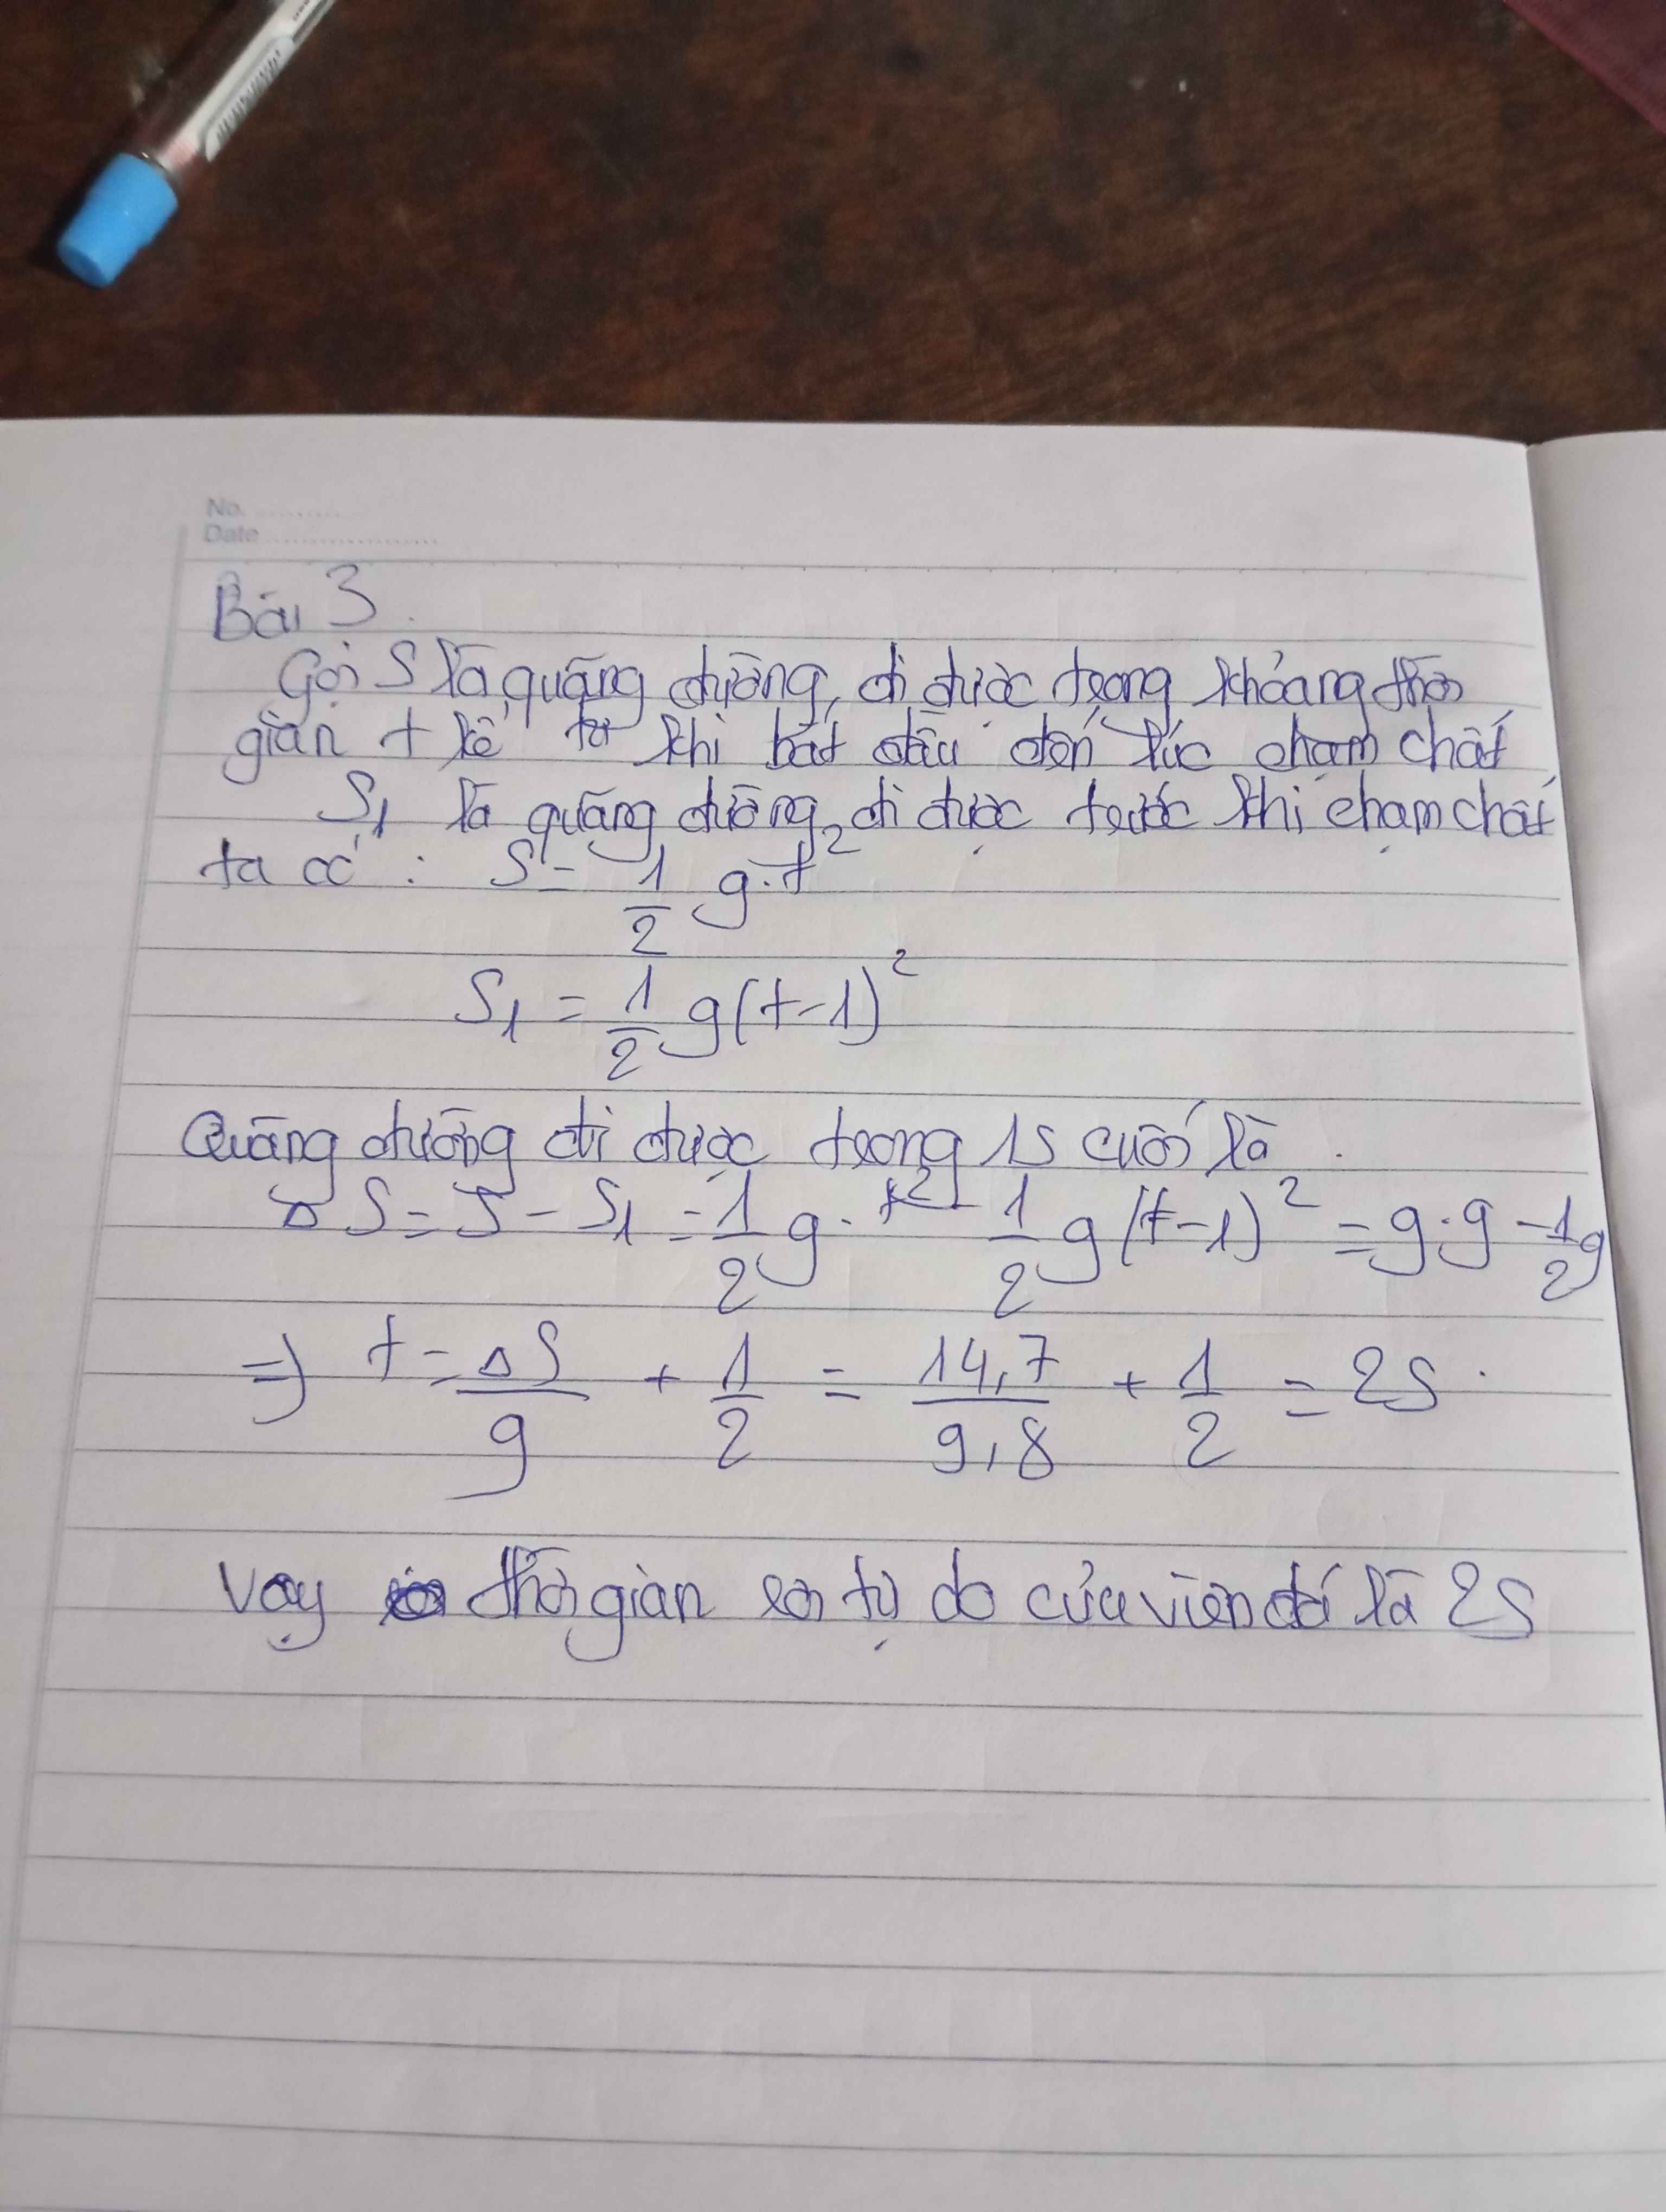 No. ..........
Date ....................
Bài 3.
Gọi S là quãng đường đi được trong khoảng thời
gian t kể từ khi bắt đầu đến lúc chạm chất
S₁ là quãng đường đi được trước khi chạm chất
ta có : S = 1/2 g.t²
S₁ = 1/2 g(t-1)²
Quãng đường đi được trong 1s cuối là .
ΔS = S - S₁ = 1/2 g. t² - 1/2 g(t-1)² = g.g - 1/2 g
=> t = ΔS/g + 1/2 = 14,7/9,8 + 1/2 = 2s .
Vậy thời gian rơi tự do của viên đá là 2s